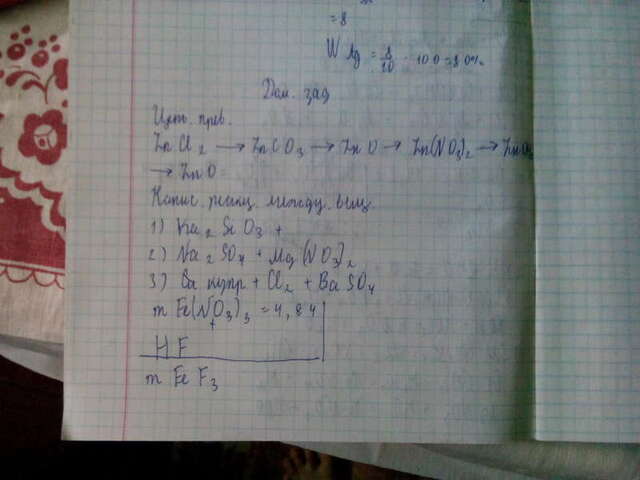 = 8
W Ag = 8/10 · 100 = 80%
Дом. зад
Цепь. прев.
ZnCl2 → ZnCO3 → ZnO → Zn(NO3)2 →
→ ZnO
Напис. реакц. между. вещ.
2) Na2SO4 + Mg(NO3)2
3) + Cl2 + BaSO4
m Fe(NO3)3 = 4,84
+
HF
m FeF3